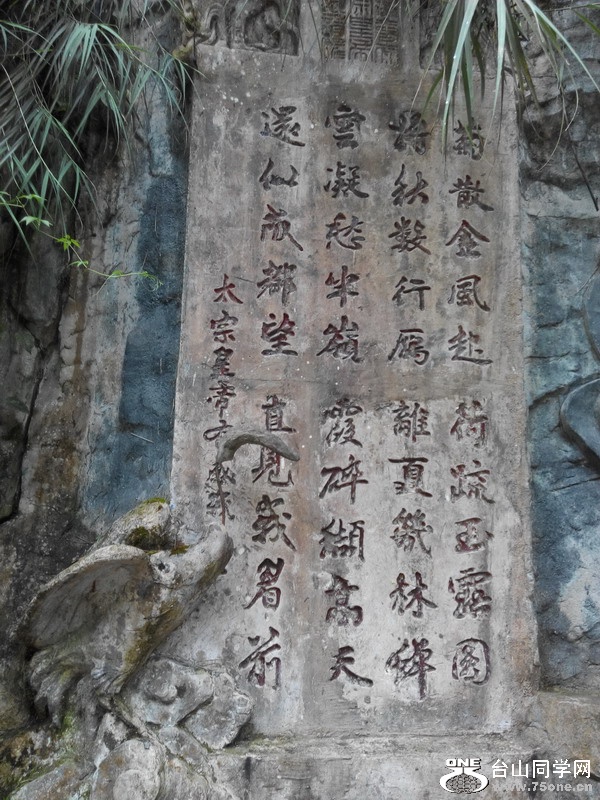 菊散金風起 荷疏玉露圓
将秋数行雁 離夏幾林蟬
雲凝愁半嶺 霞碎纈高天
還似成都望 直見峨眉前
太宗皇帝
ONE 台山同学网
www.75one.cn